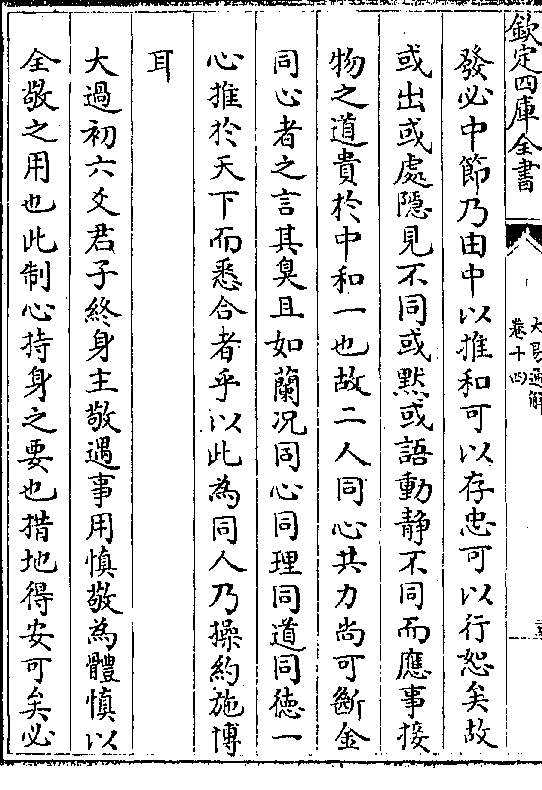 欽定四庫全書
大易通解
卷十四
發必中節乃由中以推和可以存忠可以行恕矣故
或出或處隱見不同或默或語動靜不同而應事接
物之道貴於中和一也故二人同心其力尚可斷金
同心者之言其臭且如蘭况同心同理同道同德一
心推於天下而悉合者乎以此為同人乃操約施博
耳
大過初六爻君子終身主敬遇事用慎敬為體慎以
全敬之用也此制心持身之要也措地得安可矣必